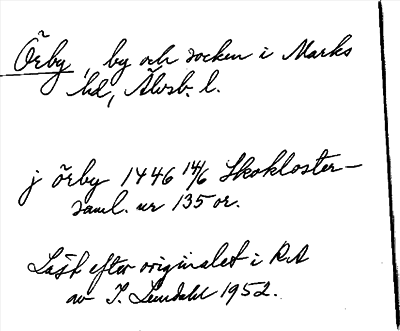 Örby, by och socken i Marks
hd, Älvsb. l.
j örby 1446 14/6 Skokloster-
saml. nr 135 or.
Läst efter originalet i RA
av I. Lundahl 1952.